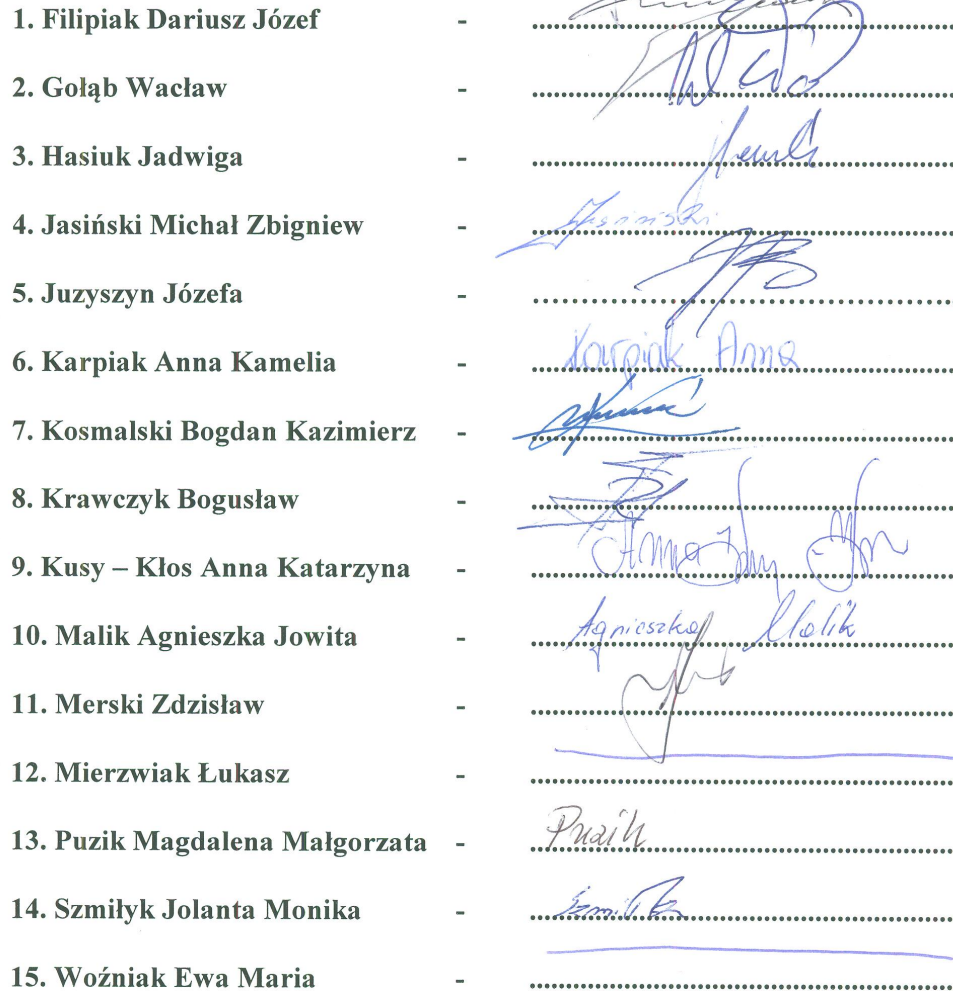 1. Filipiak Dariusz Józef -
2. Gołąb Wacław -
3. Hasiuk Jadwiga -
4. Jasiński Michał Zbigniew - Jasiński
5. Juzyszyn Józefa -
6. Karpiak Anna Kamelia - Karpiak Anna
7. Kosmalski Bogdan Kazimierz -
8. Krawczyk Bogusław -
9. Kusy – Kłos Anna Katarzyna - Anna
10. Malik Agnieszka Jowita - Agnieszka Malik
11. Merski Zdzisław -
12. Mierzwiak Łukasz -
13. Puzik Magdalena Małgorzata - Puzik
14. Szmiłyk Jolanta Monika -
15. Woźniak Ewa Maria -